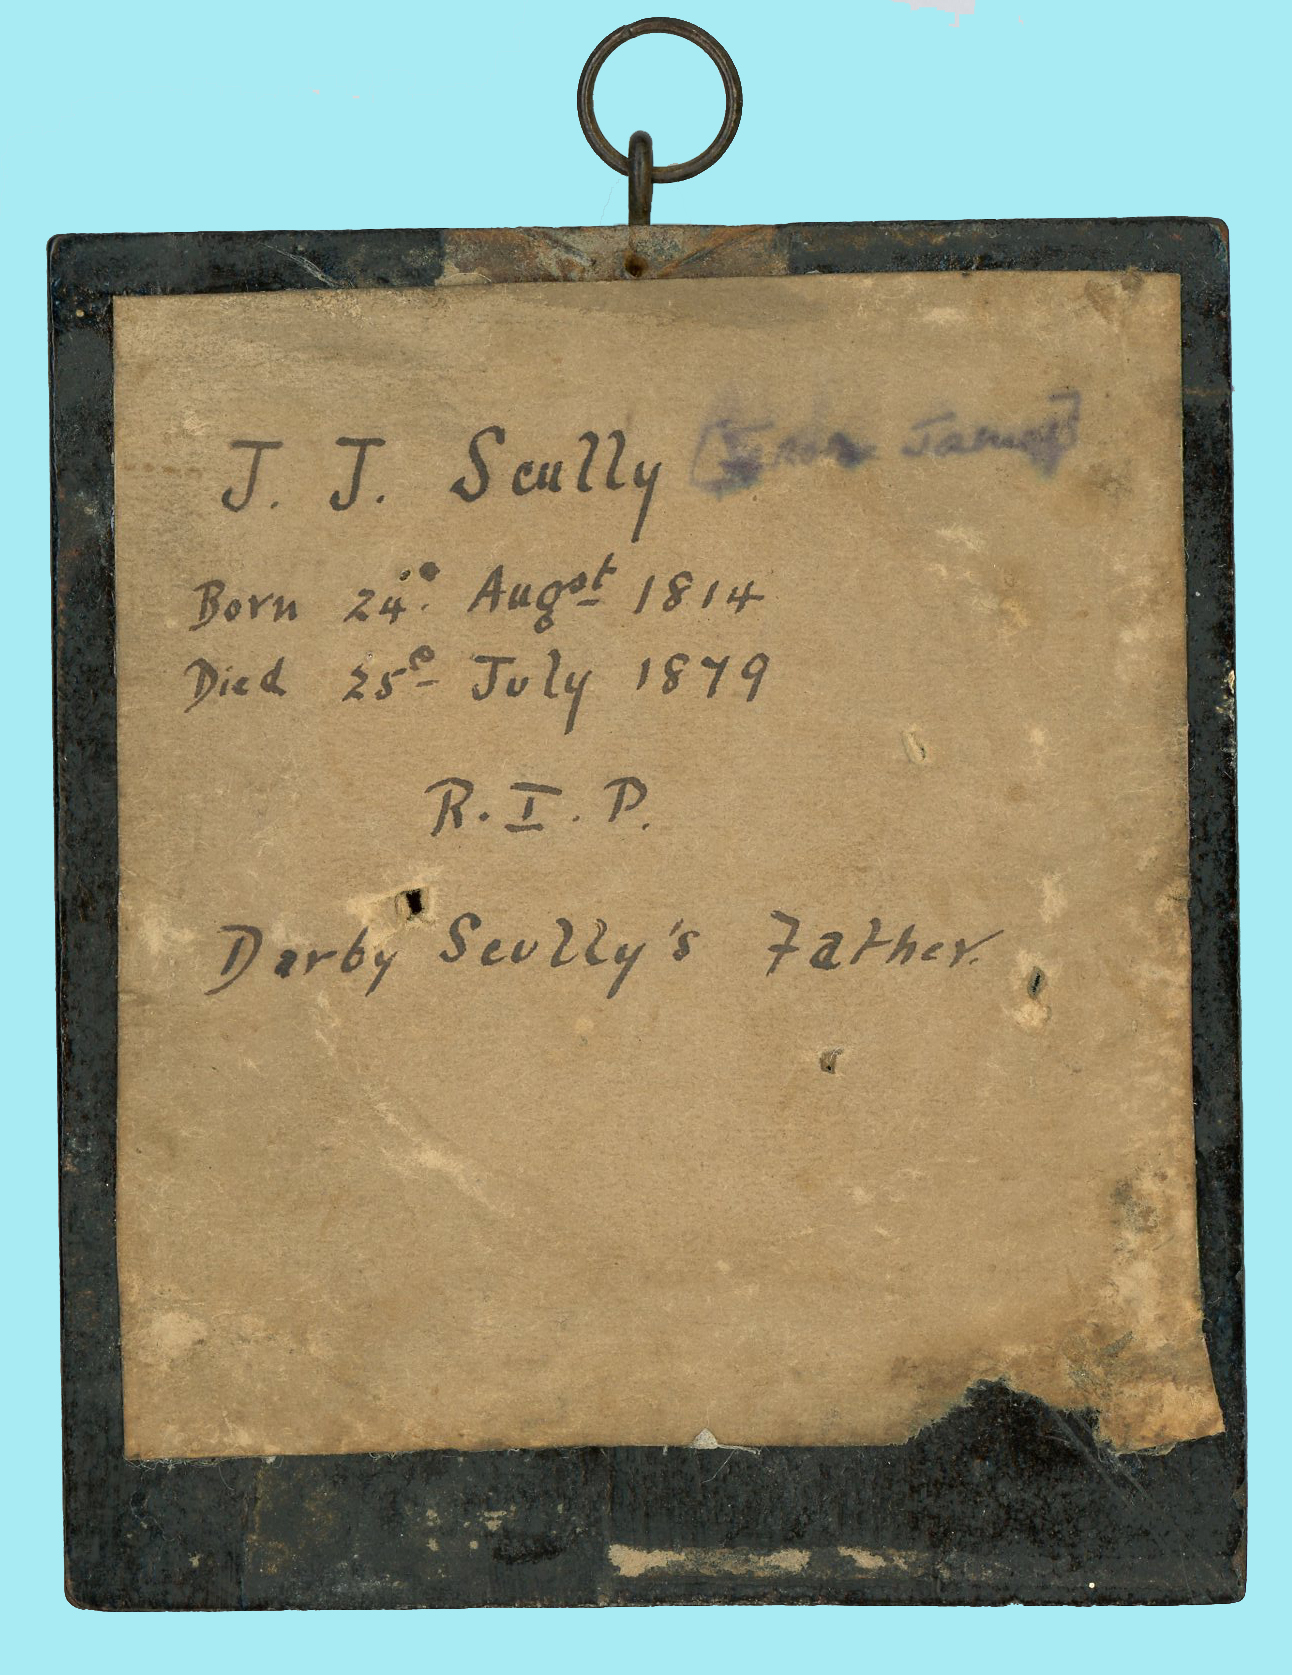 J. J. Scully [John James]
Born 24º Augst 1814
Died 25º July 1879
R. I. P.
Darby Scully's Father.